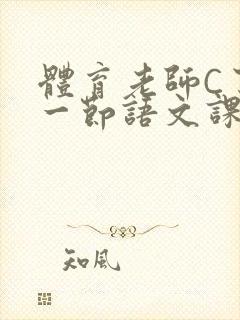 體育老師C了
一節語文課
知風